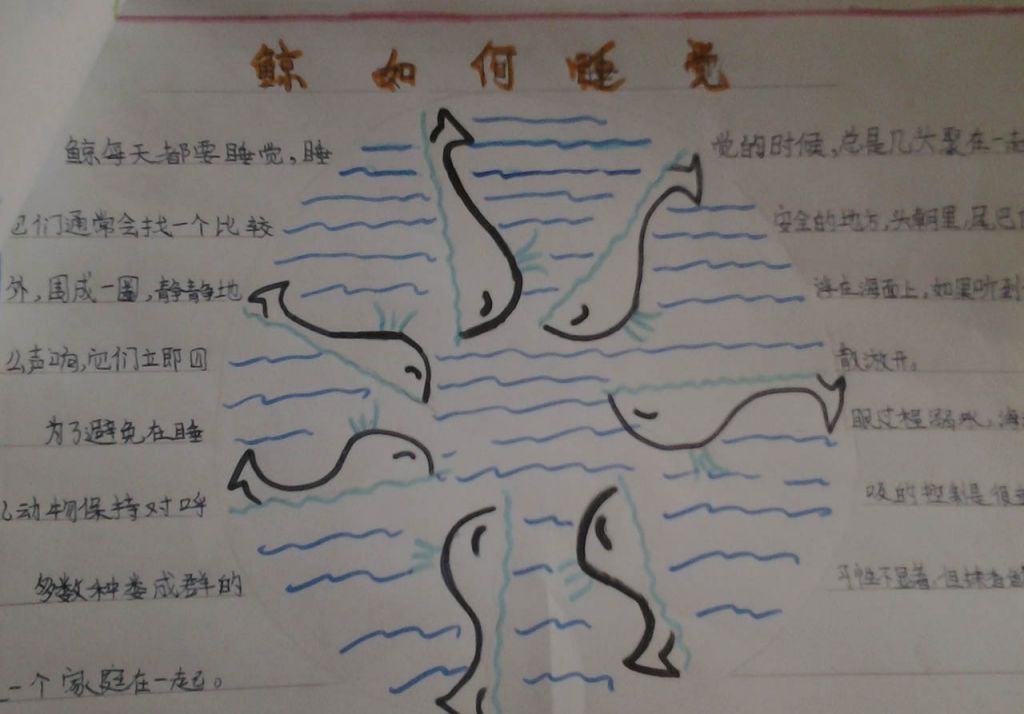 鲸如何睡觉
鲸每天都要睡觉,睡 觉的时候,总是几头聚在一起
它们通常会找一个比较 安全的地方,头朝里,尾巴
外,围成一圈,静静地 浮在海面上,如果听到
么声响,它们立即四 散游开。
为了避免在睡 眠过程溺水,海
动物保持对呼 吸的控制是很
多数种类成群的 不显著,但抹香鲸
一个家庭在一起。